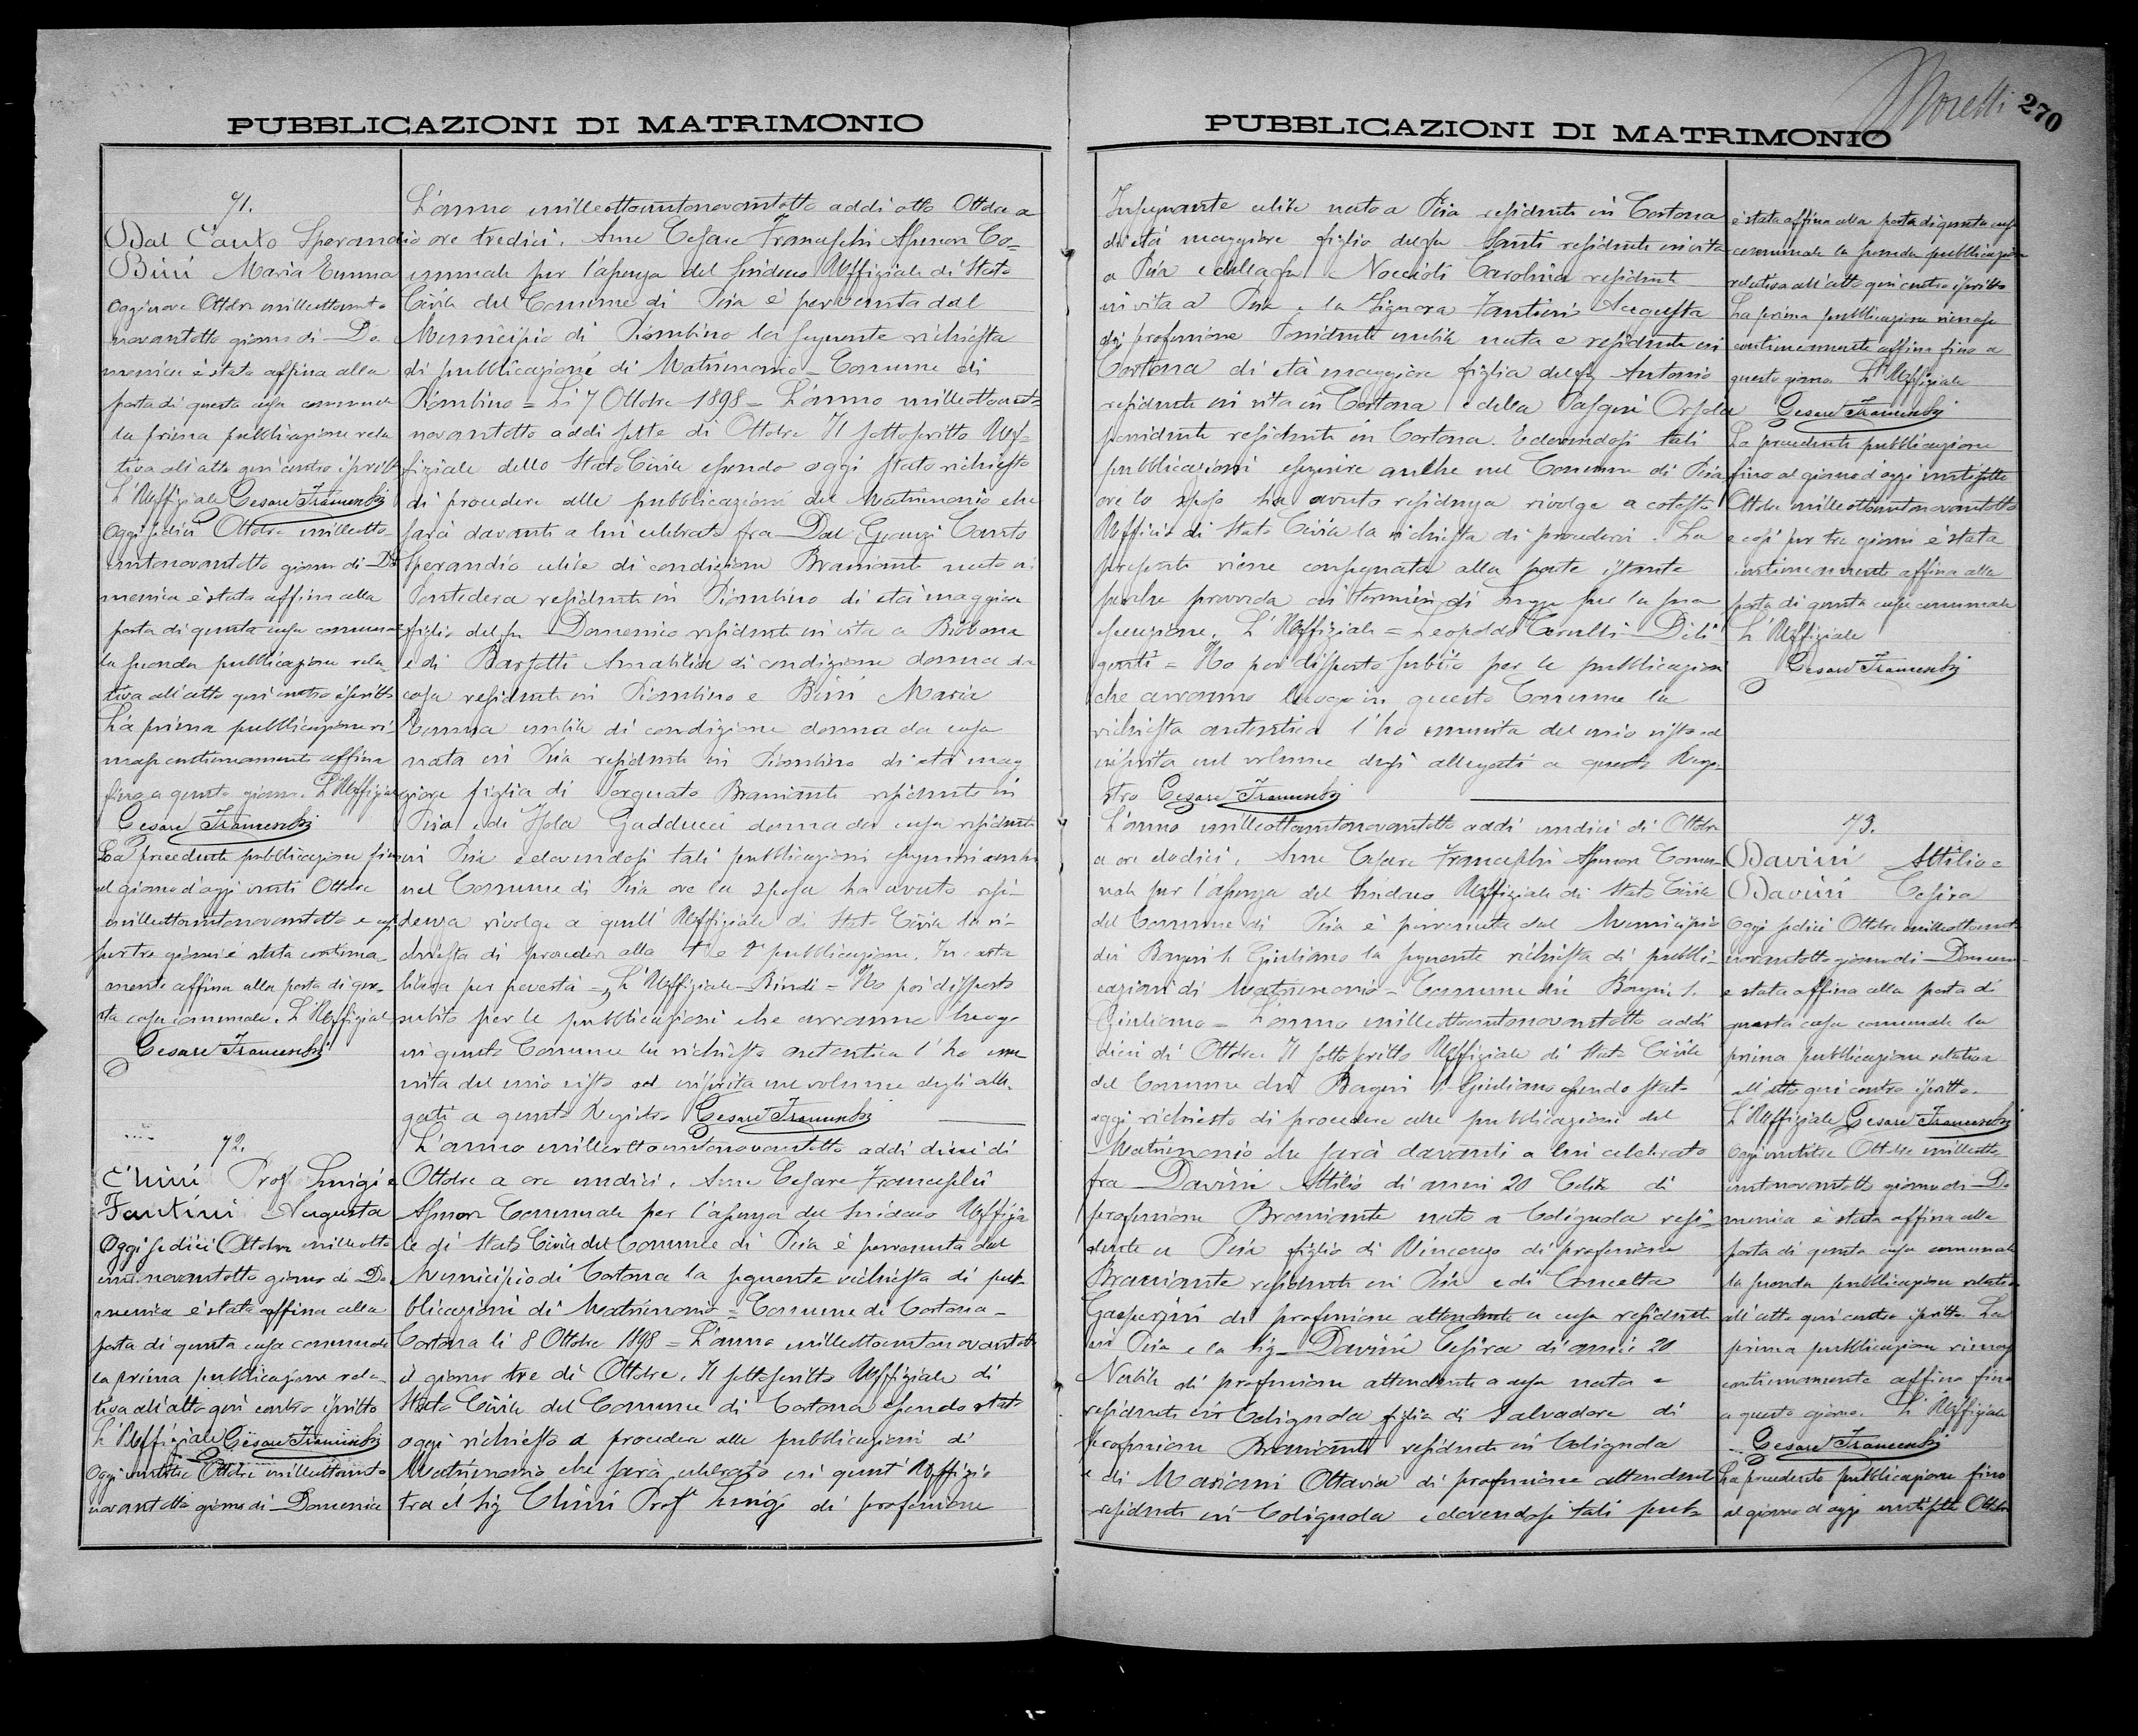 PUBBLICAZIONI DI MATRIMONIO
71.
Dal Canto Sperandio
Bini Maria Emma
Oggi nove Ottobre milleottocento
novantotto giorno di Do
menica è stata affissa alla
porta di questa casa comunale
la prima pubblicazione rela
tiva all'atto qui contro iscritto
L'Uffiziale Cesare Franceschi
Oggi sedici Ottobre milleotto
centonovantotto giorno di Do
menica è stata affissa alla
porta di questa casa comunale
la seconda pubblicazione rela
tiva all'atto qui contro iscritto
La prima pubblicazione ri
mase continuamente affissa
fino a questo giorno. L'Uffiziale
Cesare Franceschi
La precedente pubblicazione fino
al giorno d'oggi venti Ottobre
milleottocentonovantotto e così
per tre giorni è stata continua-
mente affissa alla porta di que-
sta casa comunale. L'Uffiziale
Cesare Franceschi
72.
Chini Prof Luigi e
Fantini Augusta
Oggi sedici Ottobre milleotto
centonovantotto giorno di Do
menica è stata affissa alla
porta di questa casa comunale
la prima pubblicazione rela
tiva all'atto qui contro iscritto
L'Uffiziale Cesare Franceschi
Oggi ventitre Ottobre milleottocento
novantotto giorno di Domenica
L'anno milleottocentonovantotto addi otto Ottobre a
ore tredici. Anne Cesare Franceschi Assessore Co-
munale per l'assenza del Sindaco Uffiziale di Stato
Civile del Comune di Pisa è pervenuta dal
Municipio di Piombino la seguente richiesta
di pubblicazione di Matrimonio - Comune di
Piombino = Li 7 Ottobre 1898 = L'anno milleottocento
novantotto addi sette di Ottobre Il sottoscritto Uf-
fiziale dello Stato Civile essendo oggi stato richiesto
di procedere alle pubblicazioni del Matrimonio che
sarà davanti a lui celebrato fra Dal Canto
Sperandio celibe di condizione Bracciante nato a
Pontedera residente in Piombino di età maggiore
figlio del fu Domenico residente in vita a Bibbona
e di Barsotti Amabilia di condizione donna da
casa residente in Piombino e Bini Maria
Emma nubile di condizione donna da casa
nata in Pisa residente in Piombino di età mag
giore figlia di Torquato Bracciante residente in
Pisa e di Isola Gadducci donna da casa residente
in Pisa e dovendosi tali pubblicazioni eseguirsi anche
nel Comune di Pisa ove la sposa ha avuto resi-
denza rivolge a quell'Uffiziale di Stato Civile la ri-
chiesta di procedere alla 1a e 2a pubblicazione. In carta
libera per povertà = L'Uffiziale - Bindi = Ho poi disposto
subito per le pubblicazioni che avranno luogo
in questo Comune la richiesta autentica l'ho mu
nita del mio visto ed inserita nel volume degli alle-
gati a questo Registro Cesare Franceschi
L'anno milleottocentonovantotto addi dieci di
Ottobre a ore undici. Anne Cesare Franceschi
Assessore Comunale per l'assenza del Sindaco Uffizia
le di Stato Civile del Comune di Pisa è pervenuta dal
Municipio di Cortona la seguente richiesta di pub
blicazioni di Matrimonio = Comune di Cortona -
Cortona li 8 Ottobre 1898 = L'anno milleottocentonovantotto
il giorno tre di Ottobre. Il sottoscritto Uffiziale di
Stato Civile del Comune di Cortona essendo stato
oggi richiesto a procedere alle pubblicazioni di
Matrimonio che sarà celebrato in quest'Uffizio
tra il Sig Chini Prof Luigi di professione
Morelli 270
PUBBLICAZIONI DI MATRIMONIO
Insegnante celibe nato a Pisa residente in Cortona
di età maggiore figlio del fu Santi residente in vita
a Pisa e della fu Noccioli Carolina residente
in vita a Pisa e la Signora Fantini Augusta
di professione Possidente nubile nata e residente in
Cortona di età maggiore figlia del fu Antonio
residente in vita in Cortona e della Pasqui Orsola
possidente residente in Cortona. E dovendosi tali
pubblicazioni eseguire anche nel Comune di Pisa
ove lo sposo ha avuto residenza rivolge a cotesto
Uffizio di Stato Civile la richiesta di procedervi. La
presente viene consegnata alla parte istante
perche provveda ai termini di legge per la sua
esecuzione. L'Uffiziale = Leopoldo Dili
genti = Ho poi disposto subito per le pubblicazioni
che avranno luogo in questo Comune la
richiesta autentica l'ho munita del mio visto ed
inserita nel volume degli allegati a questo Regi-
stro Cesare Franceschi
L'anno milleottocentonovantotto addi undici di Ottobre
a ore dodici. Anne Cesare Franceschi Assessore Comu-
nale per l'assenza del Sindaco Uffiziale di Stato Civile
del Comune di Pisa è pervenuta dal Municipio
dei Bagni S. Giuliano la seguente richiesta di pubbli-
cazioni di Matrimonio - Comune dei Bagni S.
Giuliano = L'anno milleottocentonovantotto addi
dieci di Ottobre Il sottoscritto Uffiziale di Stato Civile
del Comune dei Bagni S. Giuliano essendo stato
oggi richiesto di procedere alle pubblicazioni del
Matrimonio che sarà davanti a lui celebrato
fra Davini Attilio di anni 20 Celibe di
professione Bracciante nato a Colignola resi-
dente a Pisa figlio di Vincenzo di professione
Bracciante residente in Pisa e di Concetta
Gasperini di professione attendente a casa residente
in Pisa e la Sig- Davini Cesira di anni 20
Nubile di professione attendente a casa nata e
residente in Colignola figlia di Salvadore di
professione Bracciante residente in Colignola
e di Mariani Ottavia di professione attendente
residente in Colignola e dovendosi tali pub
è stata affissa alla porta di questa casa
comunale la seconda pubblicazione
relativa all'atto qui contro iscritto
La prima pubblicazione rimase
continuamente affissa fino a
questo giorno. L'Uffiziale
Cesare Franceschi
La precedente pubblicazione
fino al giorno d'oggi ventisette
Ottobre milleottocentonovantotto
e così per tre giorni è stata
continuamente affissa alla
porta di questa casa comunale
L'Uffiziale
Cesare Franceschi
73.
Davini Attilio e
Davini Cesira
Oggi sedici Ottobre milleottocento
novantotto giorno di Domenica
e stata affissa alla porta di
questa casa comunale la
prima pubblicazione relativa
all'atto qui contro iscritto.
L'Uffiziale Cesare Franceschi
Oggi ventitre Ottobre milleotto
centonovantotto giorno di Do
menica è stata affissa alla
porta di questa casa comunale
la seconda pubblicazione relativa
all'atto qui contro iscritto. La
prima pubblicazione rimase
continuamente affissa fino
a questo giorno. L'Uffiziale
Cesare Franceschi
La precedente pubblicazione fino
al giorno d'oggi ventisette Ottobre